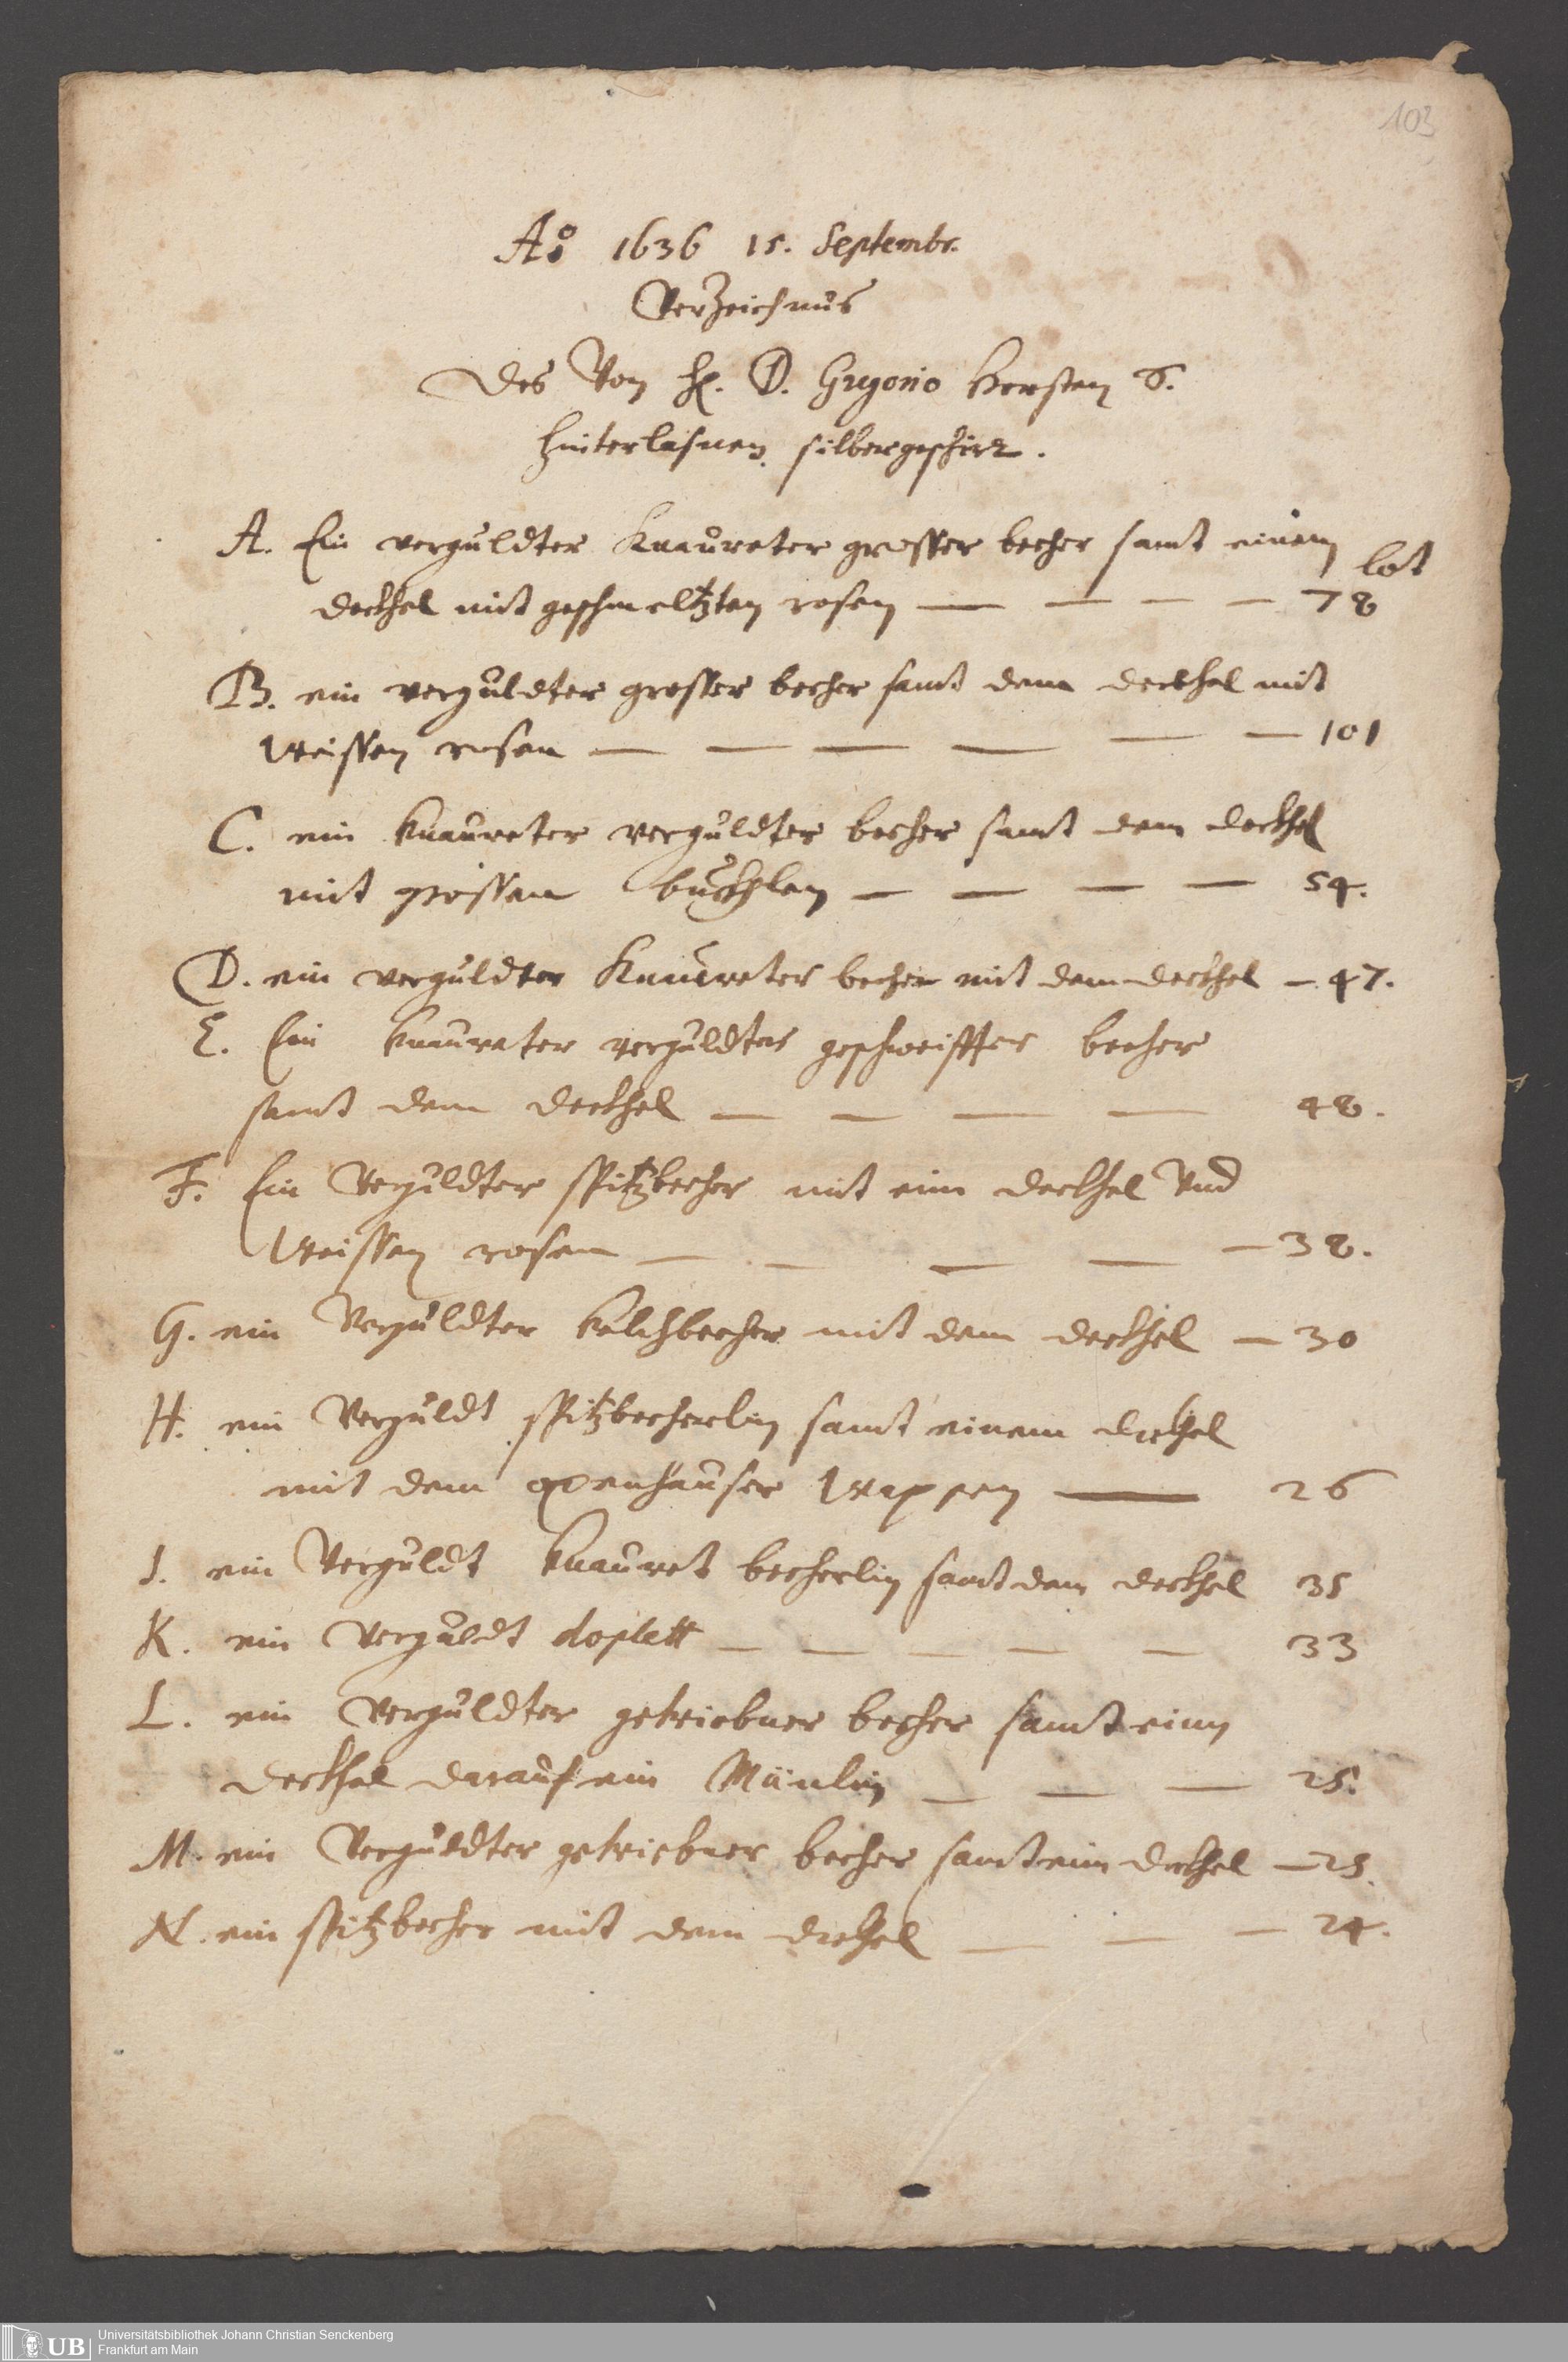 103
Aº 1636 15. Septembr.
Verzeichnus
Des Von H. D. Gregorio Horsten S.
hinterlasnen silbergeschirr.
A. Ein verguldter Knaureter grosser becher samt einem
lot
deckhel mit geschmeltzten rosen — — — — 78
B. ein verguldter grosser becher samt dem deckhel mit
Weissen rosen — — — — — — 101
C. ein knaureter verguldter becher samt dem deckhel
mit grossen buckhlen — — — — 54.
D. ein verguldter Knaureter becher mit dem deckhel — 47.
E. Ein knaureter verguldter geschweiffter becher
samt dem deckhel — — — — 48.
F. Ein Verguldter spitzbecher mit eim deckhel Und
Weissen rosen — — — — — 38.
G. ein Verguldter kelchbecher mit dem deckhel — 30
H. ein Verguldt spitzbecherlin samt einem deckhel
mit dem Wappen — 26
I. ein Verguldt knauret becherlin samt dem deckhel 35
K. ein Verguldt doplett — — — — — 33
L. ein Verguldter getriebner becher samt einem
deckhel darauf ein Mänlin — — — 25.
M. ein Verguldter getriebner becher samt eim deckhel — 25.
N. ein spitzbecher mit dem deckhel — — — 24.
UB Universitätsbibliothek Johann Christian Senckenberg
Frankfurt am Main